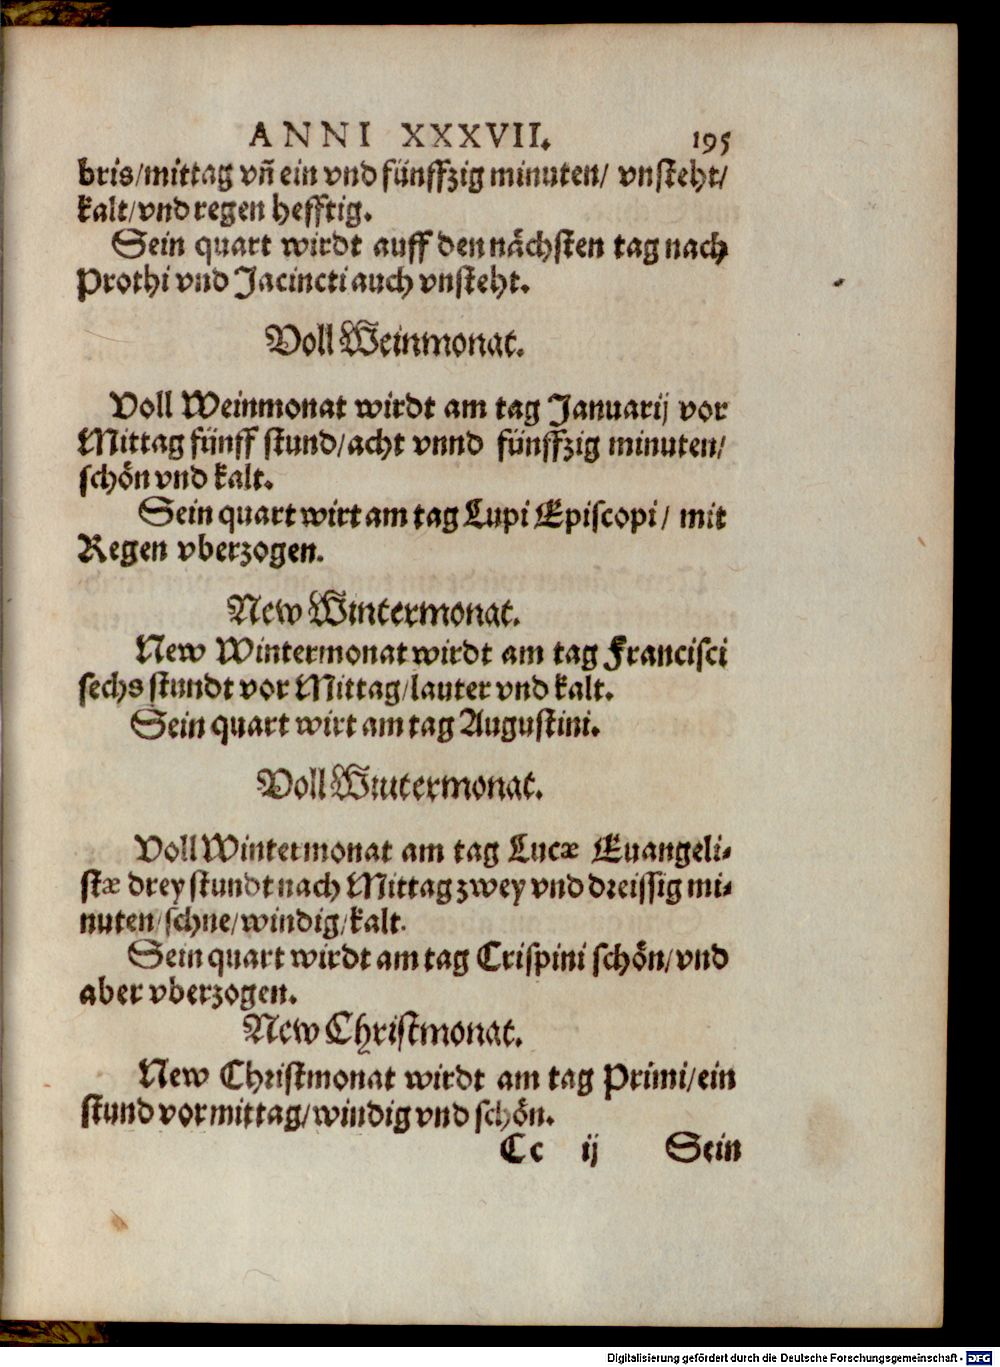 ANNI XXXVII. 195
bris/mittag vñ ein vnd fünffzig minuten/ vnsteht/
kalt/vnd regen hefftig.
Sein quart wirdt auff den nächsten tag nach
Prothi vnd Jacincti auch vnsteht.
Voll Weinmonat.
Voll Weinmonat wirdt am tag Januarij vor
Mittag fünff stund/acht vnnd fünffzig minuten/
schön vnd kalt.
Sein quart wirt am tag Lupi Episcopi/ mit
Regen vberzogen.
New Wintermonat.
New Wintermonat wirdt am tag Francisci
sechs stundt vor Mittag/lauter vnd kalt.
Sein quart wirt am tag Augustini.
Voll Wintermonat.
Voll Wintermonat am tag Lucæ Euangeli-
stæ drey stundt nach Mittag zwey vnd dreissig mi-
nuten/schne/windig/kalt.
Sein quart wirdt am tag Crispini schön/vnd
aber vberzogen.
New Christmonat.
New Christmonat wirdt am tag Primi/ein
stund vor mittag/windig vnd schön.
Cc ij Sein
Digitalisierung gefördert durch die Deutsche Forschungsgemeinschaft - DFG